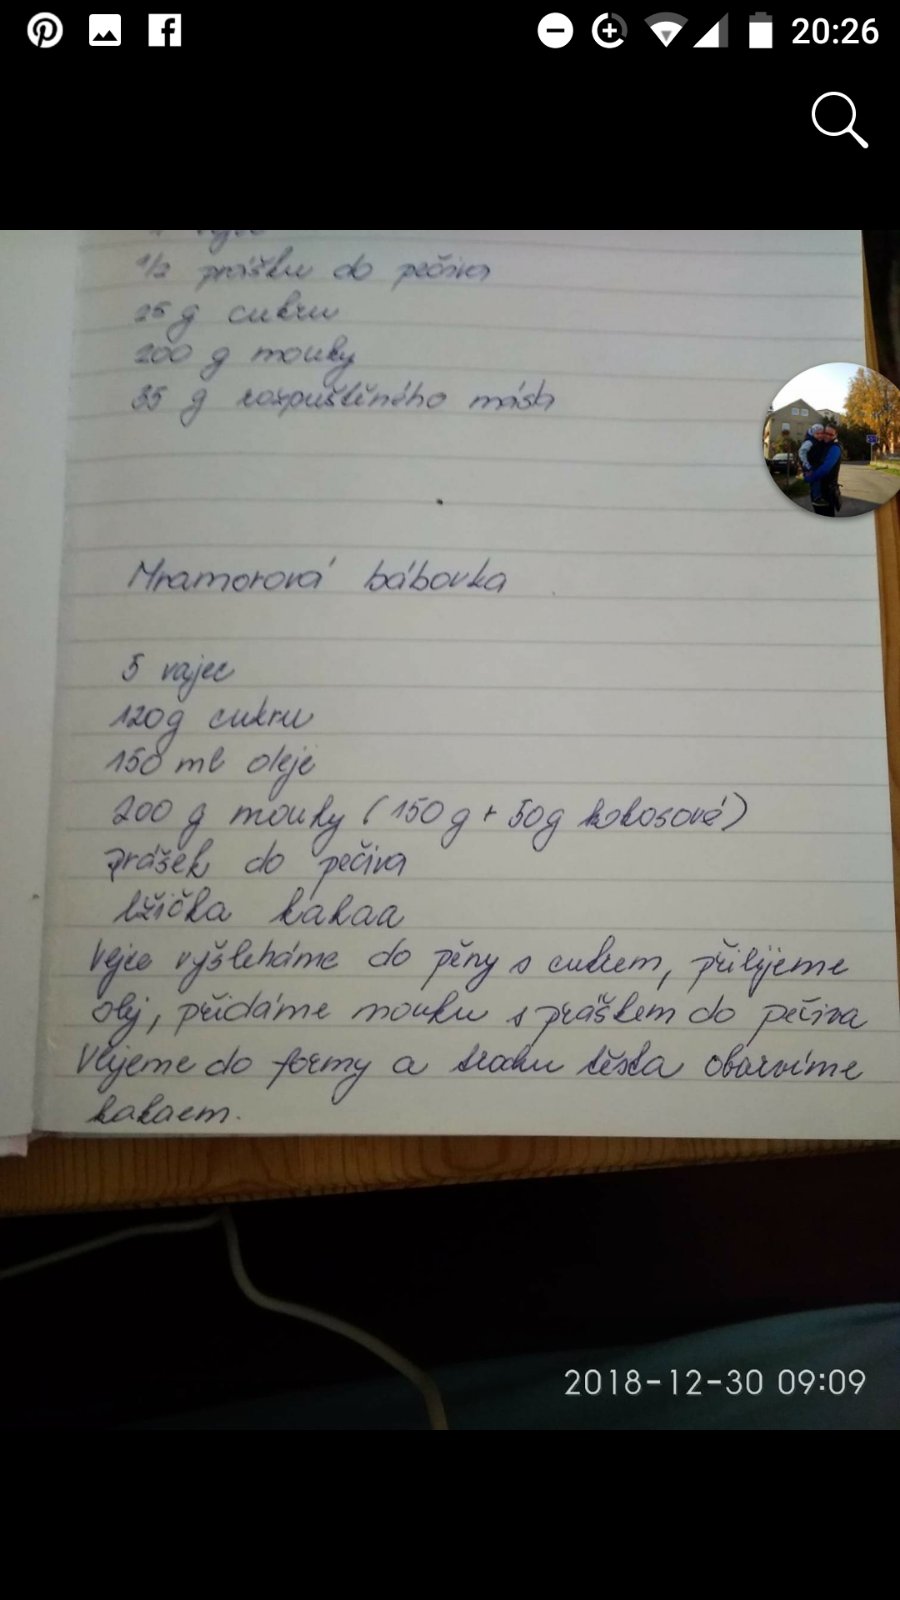 20:26
1/2 prášku do pečiva
25 g cukru
200 g mouky
35 g rozpuštěného másla
Mramorová bábovka
5 vajec
120g cukru
150 ml oleje
200 g mouky (150 g + 50g kokosové)
prášek do pečiva
lžička kakaa
Vejce vyšleháme do pěny s cukrem, přilijeme
olej, přidáme mouku s práškem do pečiva
Vlijeme do formy a trochu těsta obarvíme
kakaem.
2018-12-30 09:09